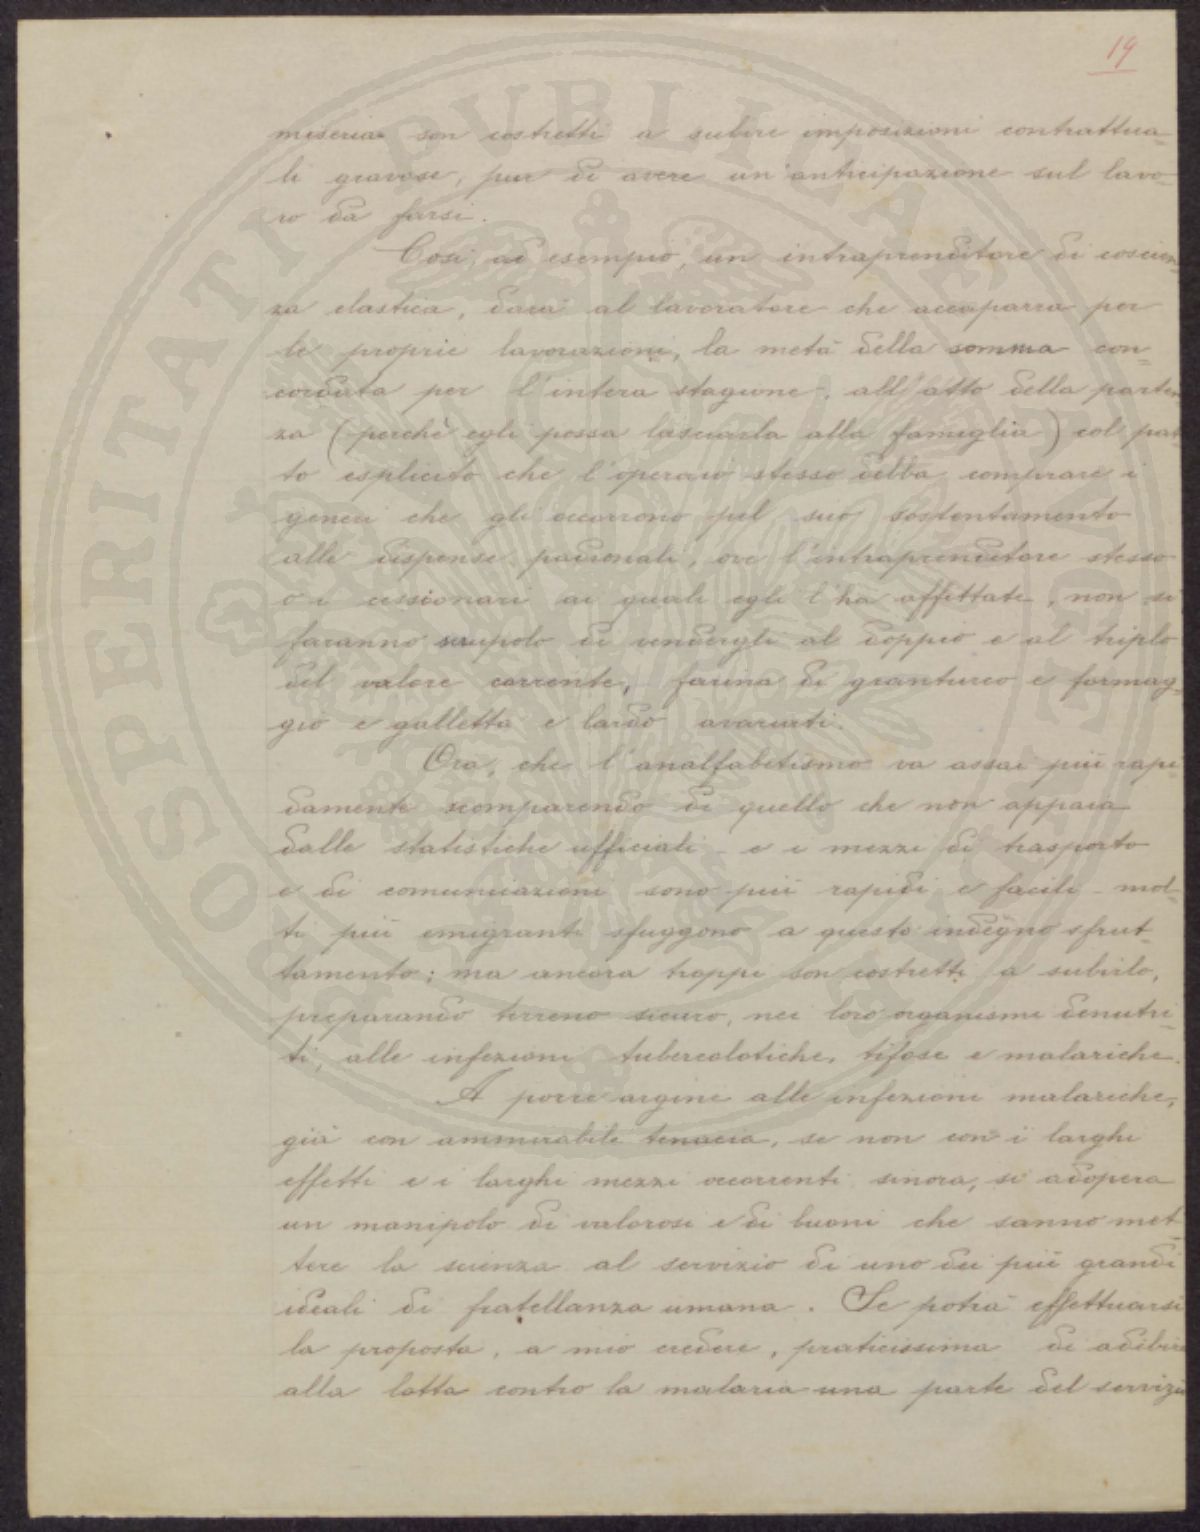 19
miseria son costretti a subire imposizioni contrattua-
li gravose, pur di avere un'anticipazione sul lavo-
ro da farsi.
Così, ad esempio, un intraprenditore di coscien-
za elastica, darà al lavoratore che accaparra per
le proprie lavorazioni, la metà della somma con-
cordata per l'intera stagione, all'atto della parten
za (perchè egli possa lasciarla alla famiglia) col pat
to esplicito che l'operaio stesso debba comprare i
generi che gli occorrono pel suo sostentamento
alle dispense padronali, ove l'intraprenditore stesso
o i cessionari ai quali egli l'ha affittate, non si
faranno scrupolo di vendergli al doppio e al triplo
del valore corrente, farina di granturco e formag-
gio e galletta e lardo avariati.
Ora, che l'analfabetismo va assai più rapi
damente scomparendo di quello che non appaia
dalle statistiche ufficiali - e i mezzi di trasporto
e di comunicazioni sono più rapidi e facili - mol-
ti più emigranti sfuggono a questo indegno sfrut-
tamento; ma ancora troppi son costretti a subirlo,
preparando terreno sicuro, nei loro organismi denutri-
ti, alle infezioni tubercolotiche, tifose e malariche.
A porre argine alle infezioni malariche,
già con ammirabile tenacia, se non con i larghi
effetti e i larghi mezzi occorrenti sinora, si adopera
un manipolo di valorosi e di buoni che sanno met-
tere la scienza al servizio di uno dei più grandi
ideali di fratellanza umana. Se potrà effettuarsi
la proposta, a mio credere, praticissima di adibire
alla lotta contro la malaria una parte del servizio
PUBLICAE
PROSPERITATI